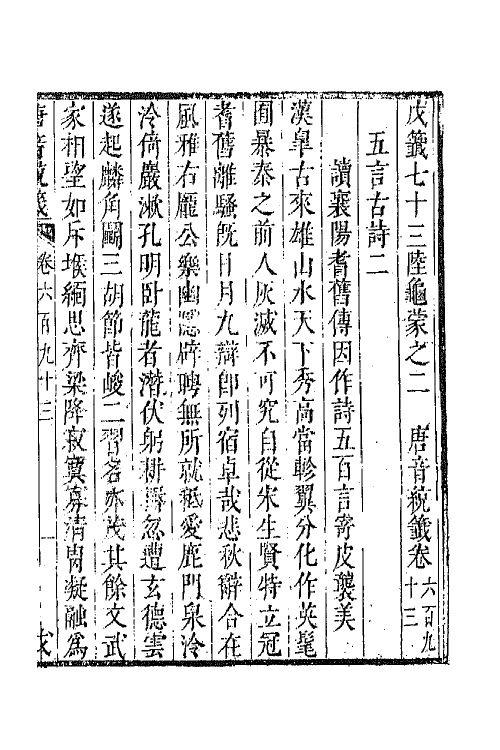 戊籖七十三陸龜蒙之二　唐音統籖卷六百九十三
五言古詩二
讀襄陽耆舊傳因作詩五百言寄皮襲美
漢皐古來雄山水天下秀高當軫翼分化作英髦
囿暴秦之前人灰滅不可究自從宋生賢特立冠
耆舊離騷旣日月九辯卽列宿卓哉悲秋辭合在
風雅右龎公樂幽隱辟聘無所就秪愛鹿門泉泠
泠倚巖漱孔明卧龍者潛伏躬耕耨忽遭玄德雲
遂起麟角鬭三胡節皆峻二習名亦茂其餘文武
家相望如斥堠緬思齊梁降寂寞寡清胄凝融爲
唐音統籖　卷六百九十三　一　戊